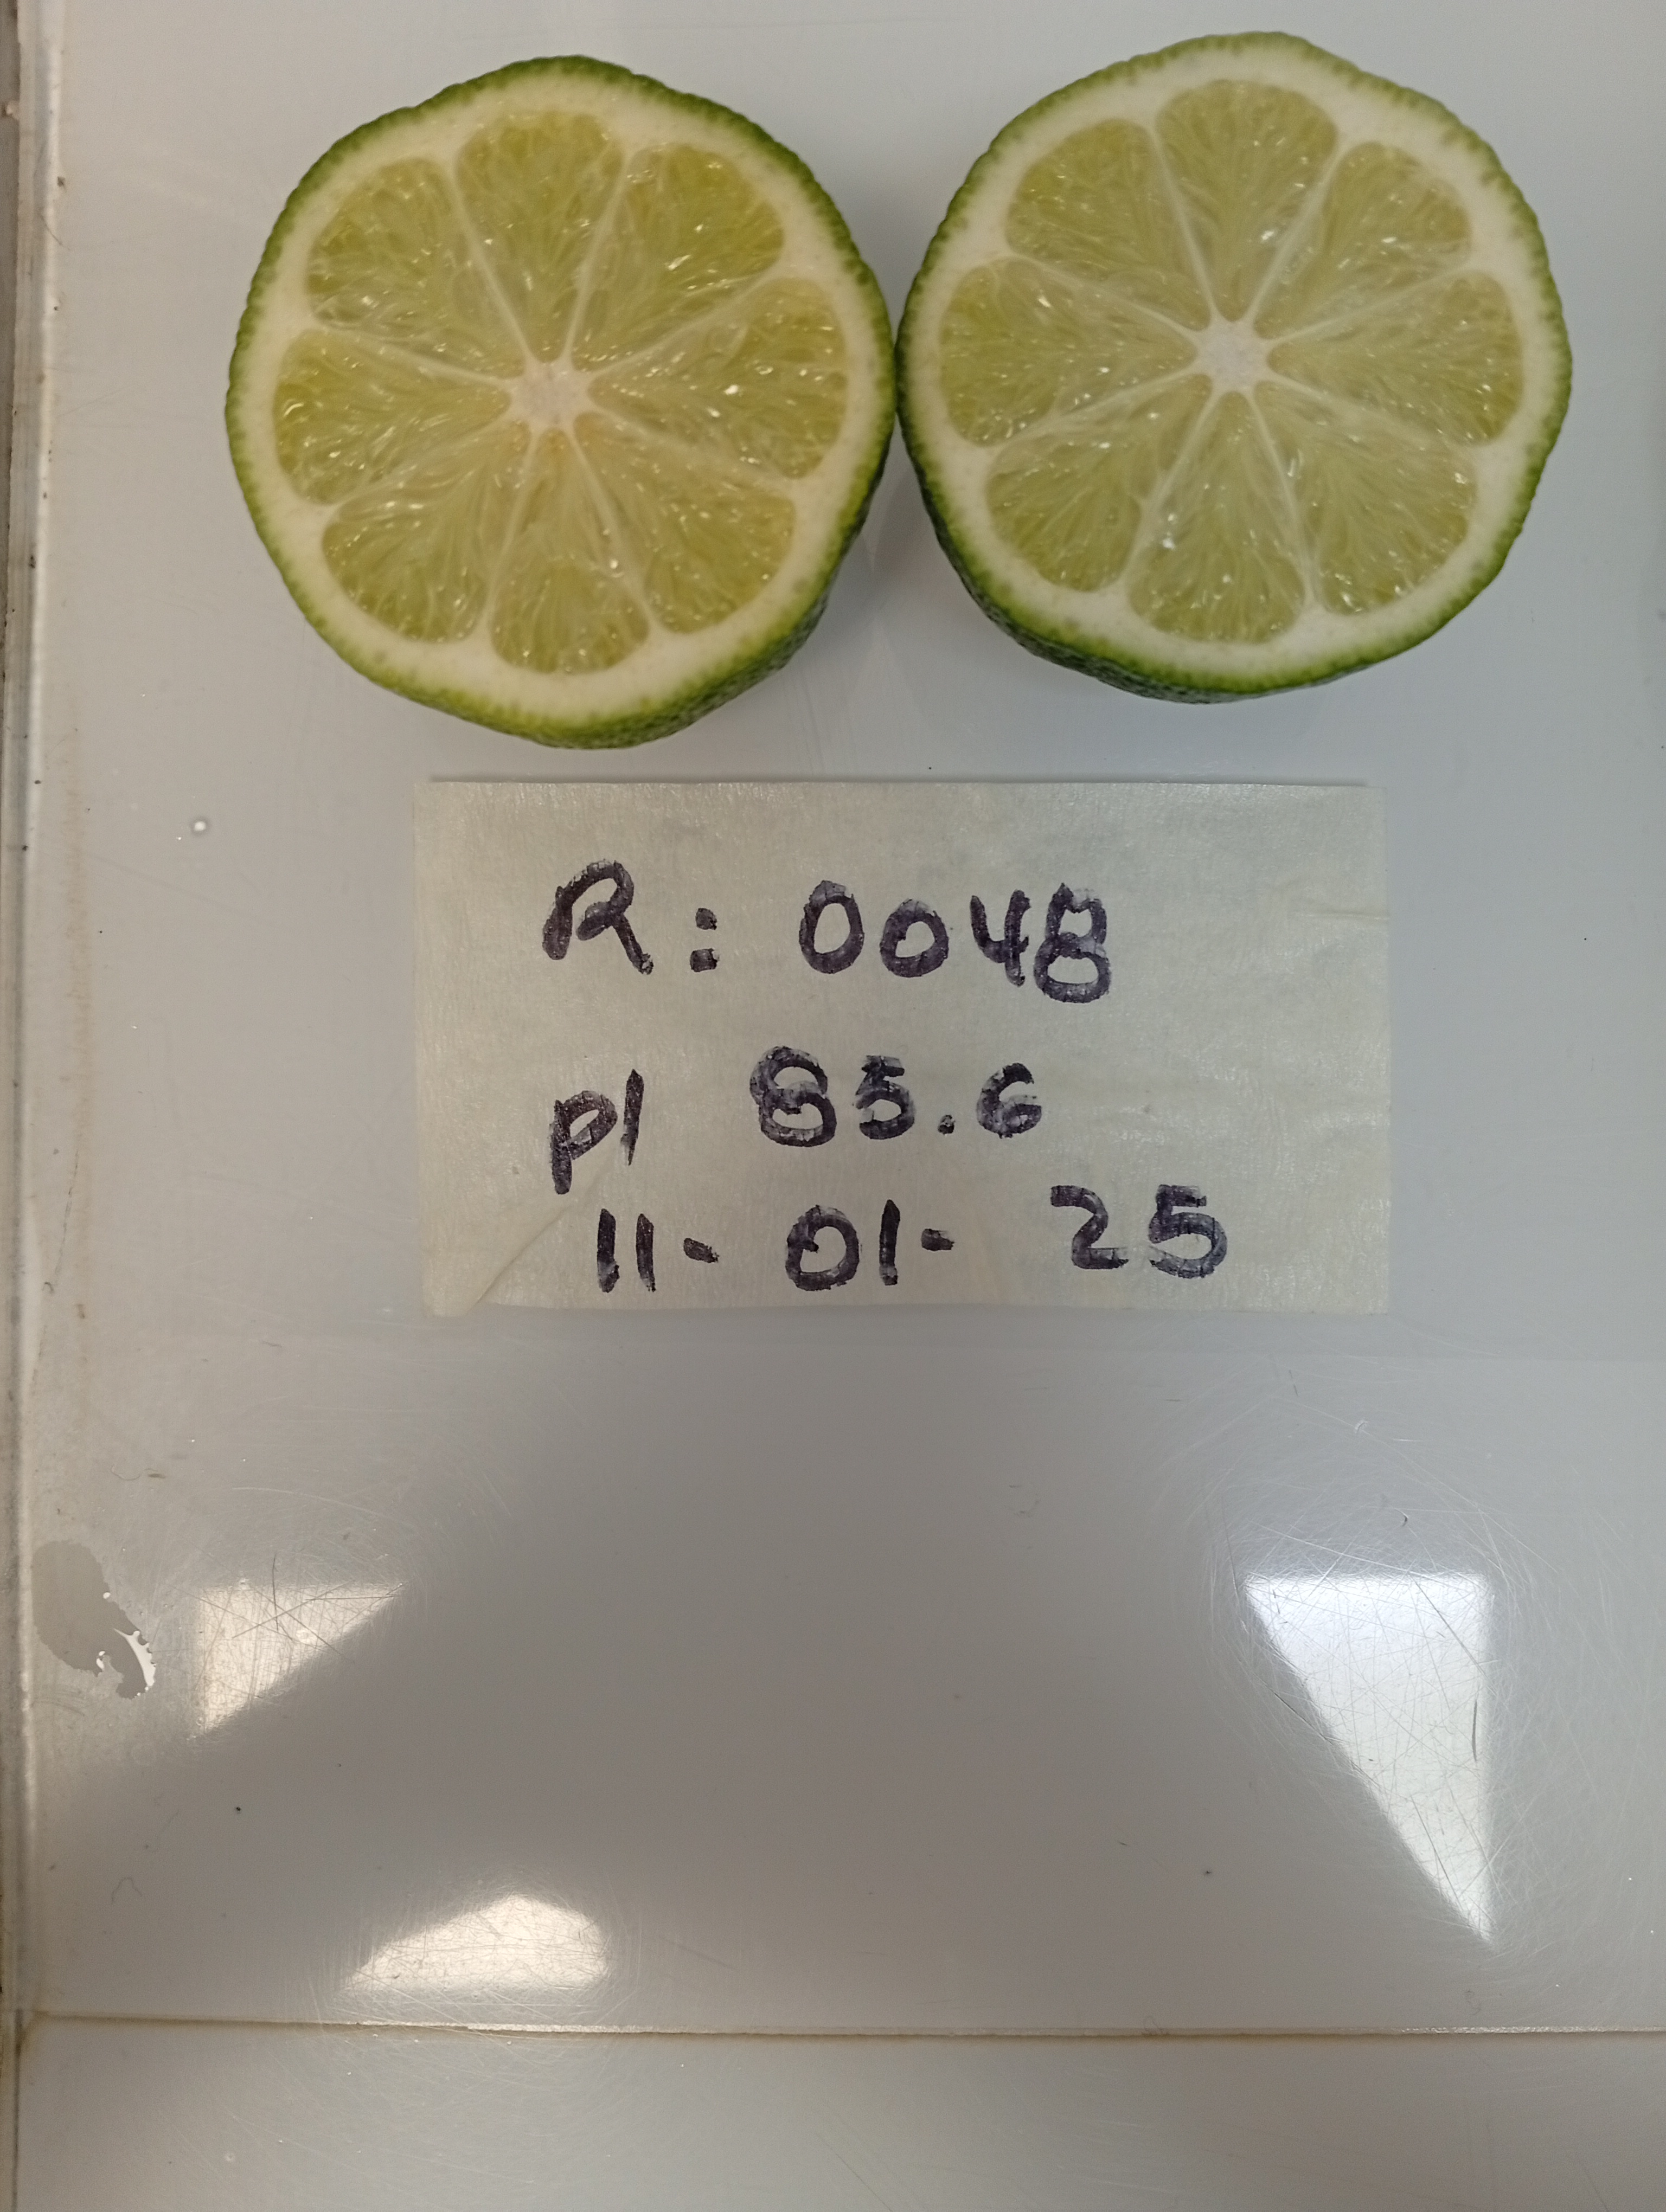 R: 0048
pl 85.6
11-01-25